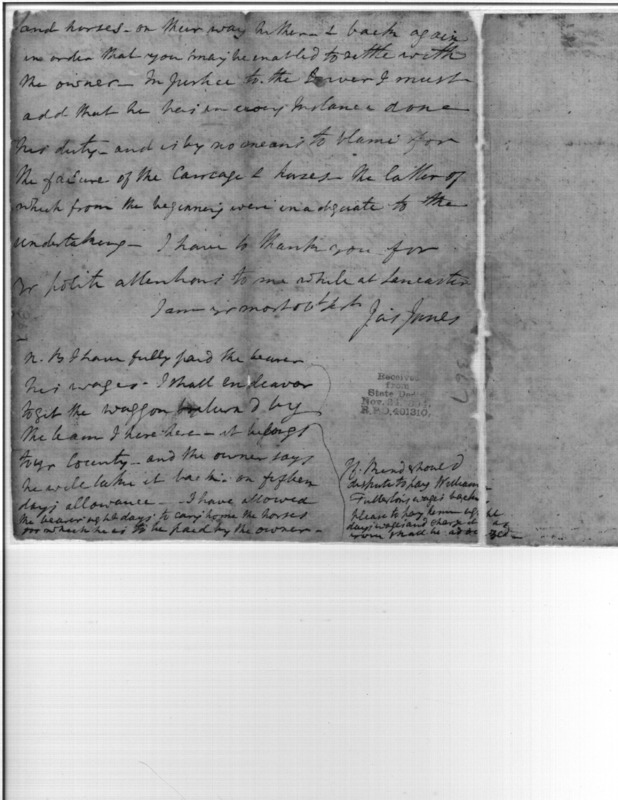 and horses - on their way hither - & back again
in order that you may be enabled to settle with
the owner - In Justice to the Driver I must
add that he has in every Instance done
his duty - and is by no means to blame for
the failure of the Carriage & horses - the latter of
which from the beginning were inadequate to the
undertaking - I have to thank you for
yr polite attentions to me while at Lancaster
I am yr most obt Sert
Jas Jones
N. B I have fully paid the bearer
his wages - I shall endeavor
to get the waggon return'd by
the team I have here - it belongs
to yr County - and the owner says
he will take it back - on fifteen
days allowance - I have allowed
the bearer eight days to carry home the horses
for which he is to be paid by the owner -
If should
dispute to pay William
Fullerton's wages back
please to pay him eight
days wages and charge it as
above shall be
367
Received
from
State Dept
Nov. 24,
S.F.D, 401310.